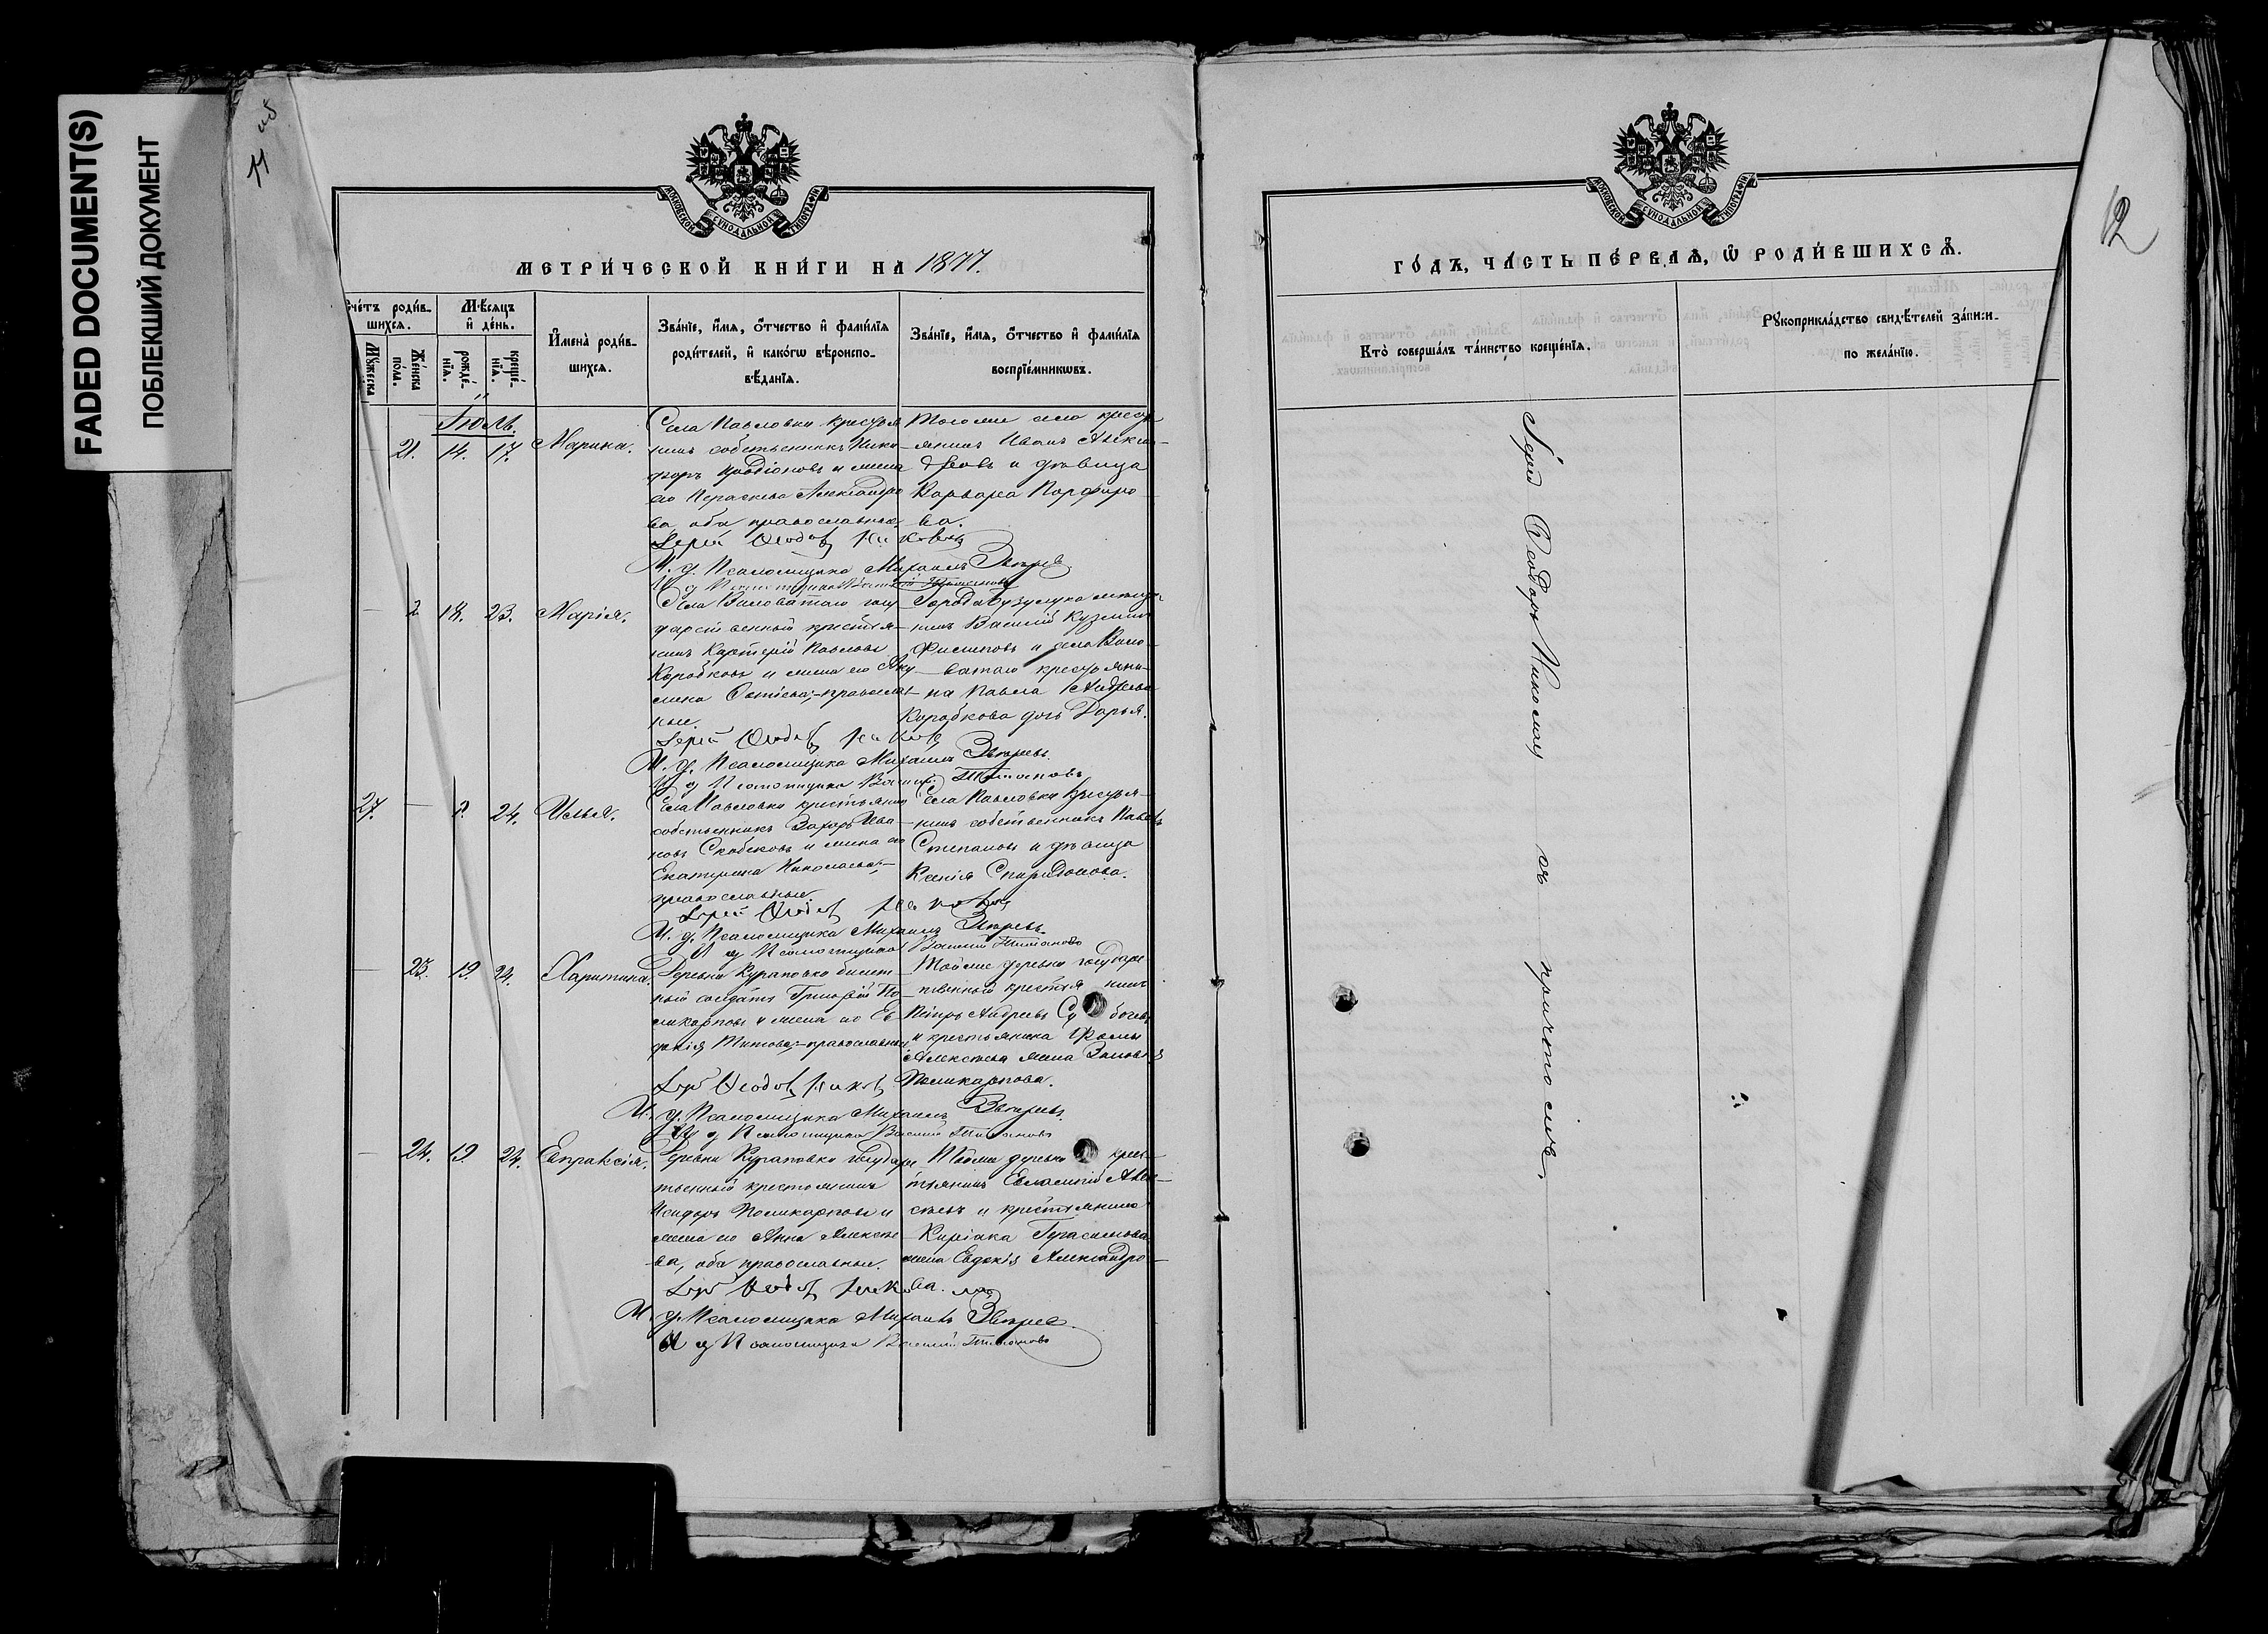 FADED DOCUMENT(S)
ПОБЛЕКШИЙ ДОКУМЕНТ
12
МОСКОВСКОЙ СѴНОДАЛЬНОЙ ТИПОГРАФІИ
МЕТРИ́ЧЕСКОЙ КНИ́ГИ НА 1877.
Сче́тъ роди́в-
шихся.
Мꙋ́жеска
Же́нска
по́ла.
Мѣ́сяцъ
и҆ де́нь.
рожде́-
нїѧ.
креще́-
нїѧ.
И҆мена̀ роди́в-
шихся.
Зва́нїе, и҆́мѧ, ѻ҆́тчество и҆ фами́лїѧ
роди́телей, и҆ како́гѡ вѣроиспо-
вѣ́данїѧ.
Зва́нїе, и҆́мѧ, ѻ҆́тчество и҆ фами́лїѧ
воспрїе́мникѡвъ.
Іюль.
21. 14. 17. Марина.
Села Павловки крестья
нинъ собственникъ Ники
форъ Иродіоновъ и жена
его Параскева Александро
ва, оба православные.
Тогоже села кресть
янинъ Иванъ Алекса
ндровъ и дѣвица
Варвара Порфиро
ва.
Іерей Ѳеодоръ
И. д. Псаломщика Михаилъ Звѣревъ
И д Псаломщика
18. 23. Марія.
Села Виловатаго госу
дарственный крестья
нинъ Картерій Павловъ
Коробковъ и жена его Аку
лина Фотіева, православ
ные.
Города Бузулука мѣща
нинъ Василій Кузминъ
Филиповъ и села Вило
ватаго крестьяни
на Павла Андреева
Коробкова дочь Дарья.
Іерей Ѳеодоръ
И. д. Псаломщика Михаилъ Звѣревъ.
И д Псаломщика Василій Тимановъ
27. — 24. Илья.
Села Павловки крестьянинъ
собственникъ Захаръ Ива
новъ Скобековъ и жена его
Екатерина Николаева,
православные.
Села Павловки крестья
нинъ собственникъ Павелъ
Степановъ и дѣвица
Ксенія Спиридонова.
Іерей Ѳеодоръ
И. д. Псаломщика Михаилъ Звѣревъ.
И д Псаломщика Василій Тимановъ
— 23. 19. 24. Харитина.
Деревни Кураповки билет
ный солдатъ Григорій По
ликарповъ и жена его Ев
фимія Титова, православные
Тойже деревни государс
твенный крестья нинъ
Петръ Андреевъ
и крестьянина Фомы
Алексѣева жена Зиновія
Поликарпова.
Іерей Ѳеодоръ
И. д. Псаломщика Михаилъ Звѣревъ.
И д Псаломщика Василій Тимановъ
— 24. 19. 24. Евпраксія.
Деревни Кураповки государс
твенный крестьянинъ
Исидоръ Поликарповъ и
жена его Анна Алексѣе
ва, оба православные.
Тойже деревни крес
тьянинъ Евлампій Алек
сѣевъ и крестьянина
Киріака Герасимова
жена Евдокія Александро
ва.
Іерей Ѳеодоръ
И. д. Псаломщика Михаилъ Звѣревъ
И д Псаломщика Василій Тимановъ
МОСКОВСКОЙ СѴНОДАЛЬНОЙ ТИПОГРАФІИ
ГО́ДЪ, ЧА́СТЬ ПЕ́РВАѦ, Ѡ҆ РОДИ́ВШИХСѦ.
Кто̀ соверша́лъ та́инство креще́нїѧ.
Рꙋкоприкла́дство свидѣ́телей за́писи
по жела́нїю.
Іерей Ѳеодоръ съ причтомъ.